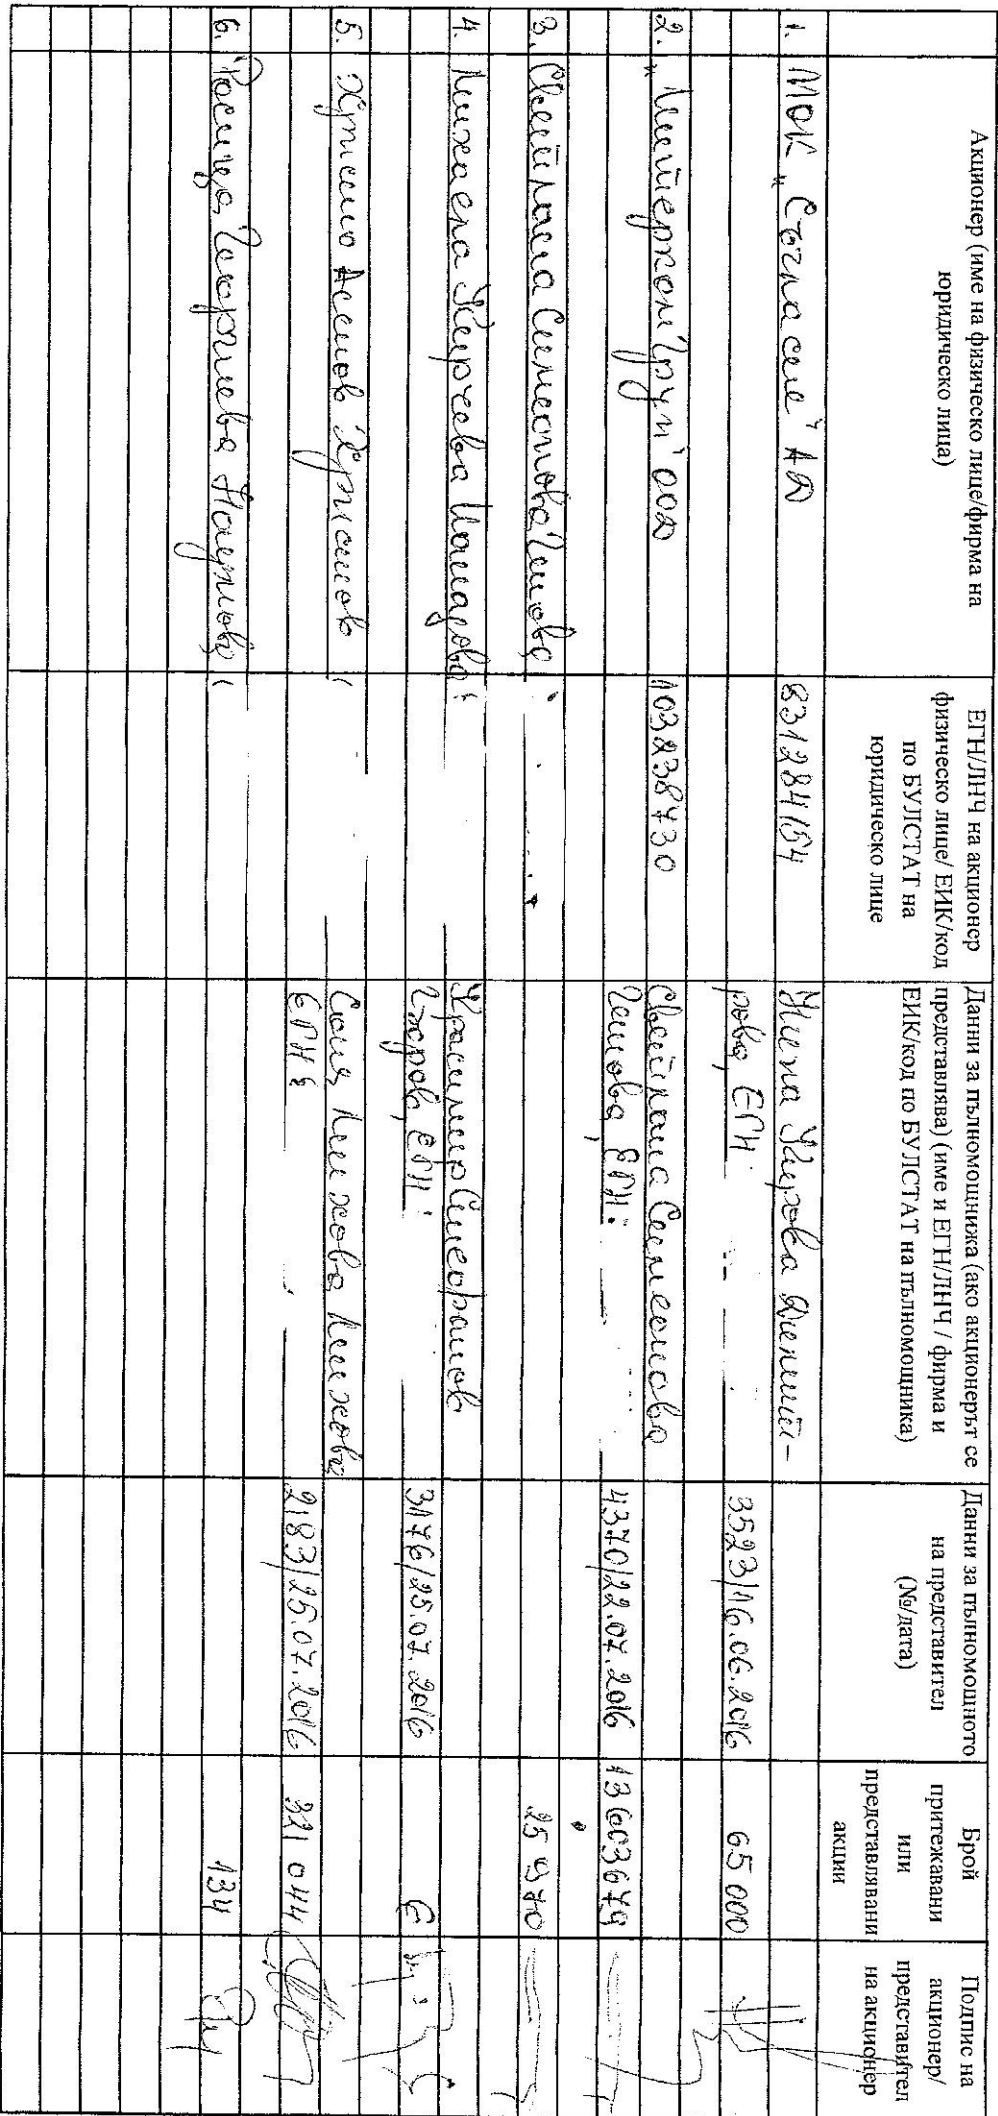 Акционер (име на физическо лице/фирма на
юридическо лица)
ЕГН/ЛНЧ на акционер
физическо лице/ ЕИК/код
по БУЛСТАТ на
юридическо лице
Данни за пълномощнижа (ако акционерът се
представлява) (име и ЕГН/ЛНЧ / фирма и
ЕИК/код по БУЛСТАТ на пълномощника)
Данни за пълномощното
на представител
(№/дата)
Брой
притежавани
или
представлявани
акции
Подпис на
акционер/
представител
на акционер
1. МОК „Съгласие" АД
831284154
Жилка Кирова Димит-
рова, ЕГН:
3523/16.06.2016
65 000
2. „Интерком Груп" ООД
103238730
Светлана Симеонова
Генова, ЕГН:
4370/22.07.2016
13603679
3. Светлана Симеонова Генова
25 970
4. Михаела Кирчева
Красимир
ЕГН:
3176/25.07.2016
6
5. Христо Асенов Христов
Соня Михова Михова
ЕГН
2183/25.07.2016
321 044
6. Росица Георгиева Наумова
134